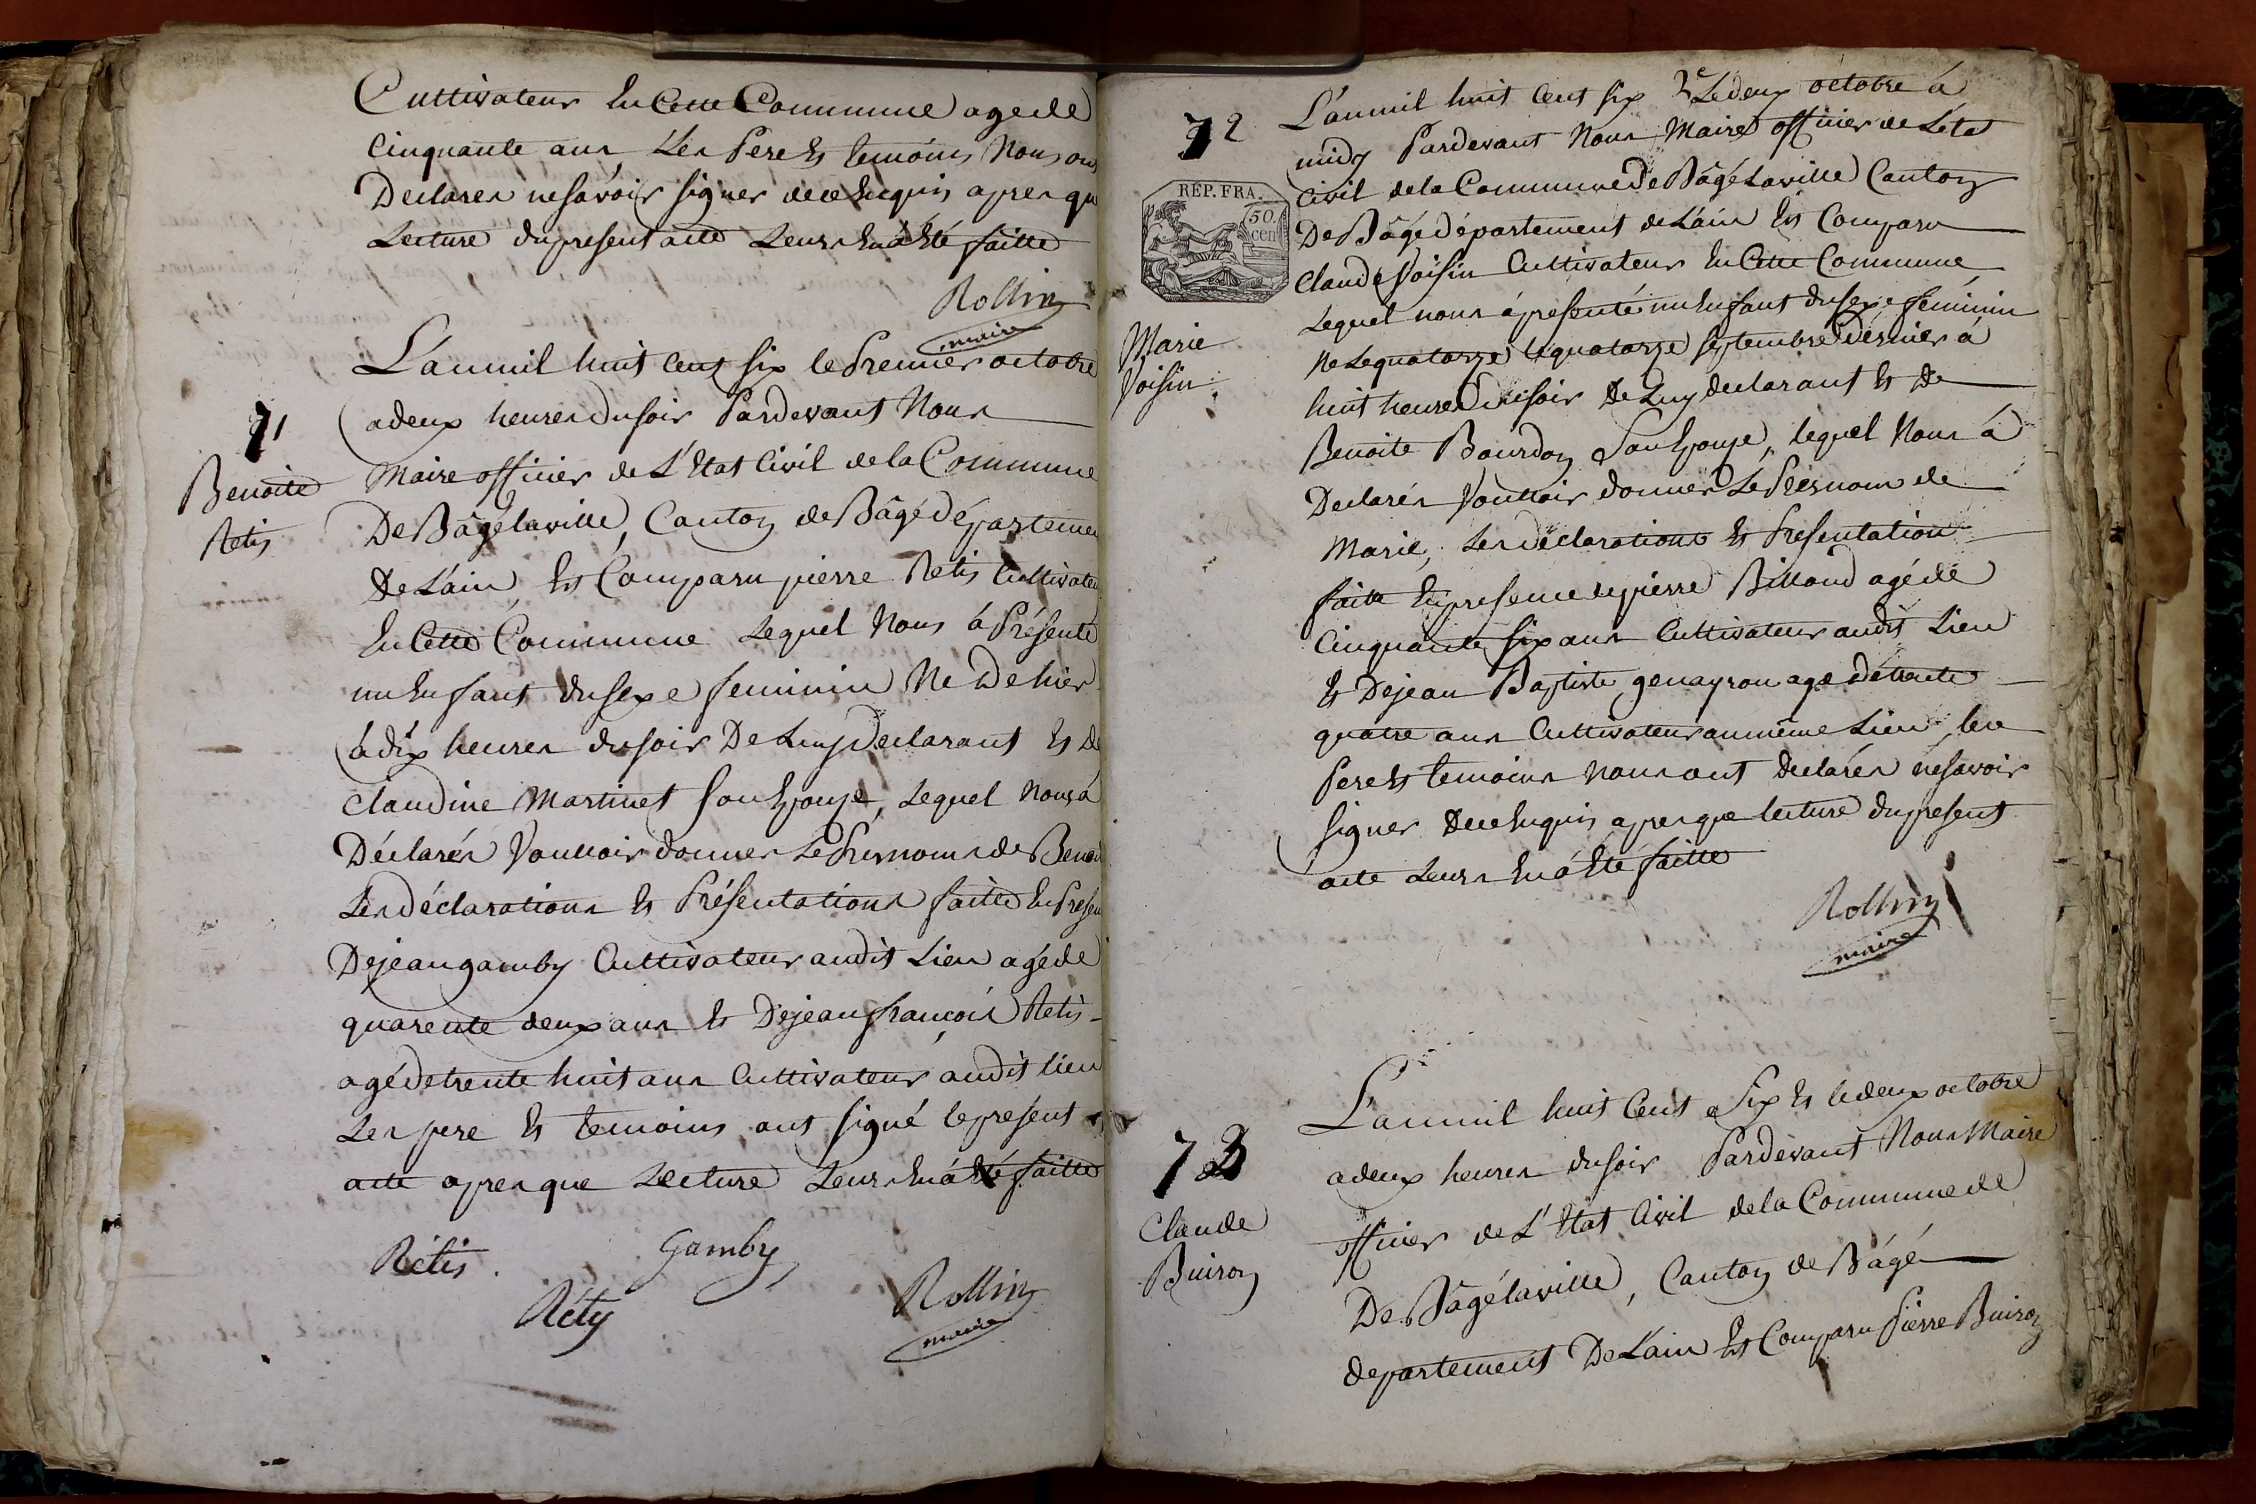 Cultivateur En Cette Commune agé de
Cinquante ans, Les Pere Et temoins Nous ont
Declarés ne savoir signer de ce Enquis apres que
Lecture du present acte Leurs En á Eté faitte
Rollin
maire
71
Benoite
Retis
L'an mil huit cent six le Premier octobre
a deux heures du soir Pardevant Nous
Maire officier de L'Etat Civil de la Commune
De Bâgélaville, Canton de Bâgé départemen
De L'ain, Est Comparu pierre Retis Cultivateu
En Cette Commune Lequel Nous á Présenté
un Enfant du sexe feminin Né De hier
à dix heures du soir De Luy Declarant Et De
Claudine Martinet son Epouse, Lequel Nous á
Déclarés Voulloir donner Le Presnoms de Benoi
Les déclarations Et Présentations faitte En Presen
De jean gamby Cultivateur audit Lieu agé de
quarente deux ans Et De jean françois Retis
agé de trente huit ans Cultivateur audit lieu
Les pere Et temoins ont signé le present
acte apres que Lecture Leurs En á Eté faitte
Rétis
Gamby
Réty
Rollin
maire
72
REP. FRA.
50
cen
Marie
Voisin
L'an mil huit Cent six Et Le deux octobre á
midy Pardevant Nous Maire officier de L'état
Civil de la Commune De Bâgé Laville Canton
De Bâgé département de L'ain Est Comparu
Claude Voisin Cultivateur En Cette Commune
Lequel nous á presenté un Enfant du sexe feminin
Né Le quatorze Le quatorze septembre dernier á
huit heures du soir De Luy declarant Et De
Benoite Bourdon Son Epouse, lequel Nous á
Declarés Voulloir donner Le Presnom de
Marie, Les déclarations Et Presentation
faitte En presence de pierre Billoud agé de
Cinquante six ans Cultivateur audit Lieu
Et De jean Baptiste genayron agé de trente
quatre ans Cultivateur au même Lieu, les
Pere Et temoins nous ont Declarés ne savoir
signer De ce Enquis apres que lecture du present
acte Leurs En á Eté faitte
Rollin
maire
73
Claude
Buiron
L'an mil huit Cent Six Et le deux octobre
a deux heures du soir Pardevant Nous Maire
officier de L'Etat Civil de la Commune de
De Bâgélaville, Canton de Bâgé
departement De L'ain Est Comparu Pierre Buiron